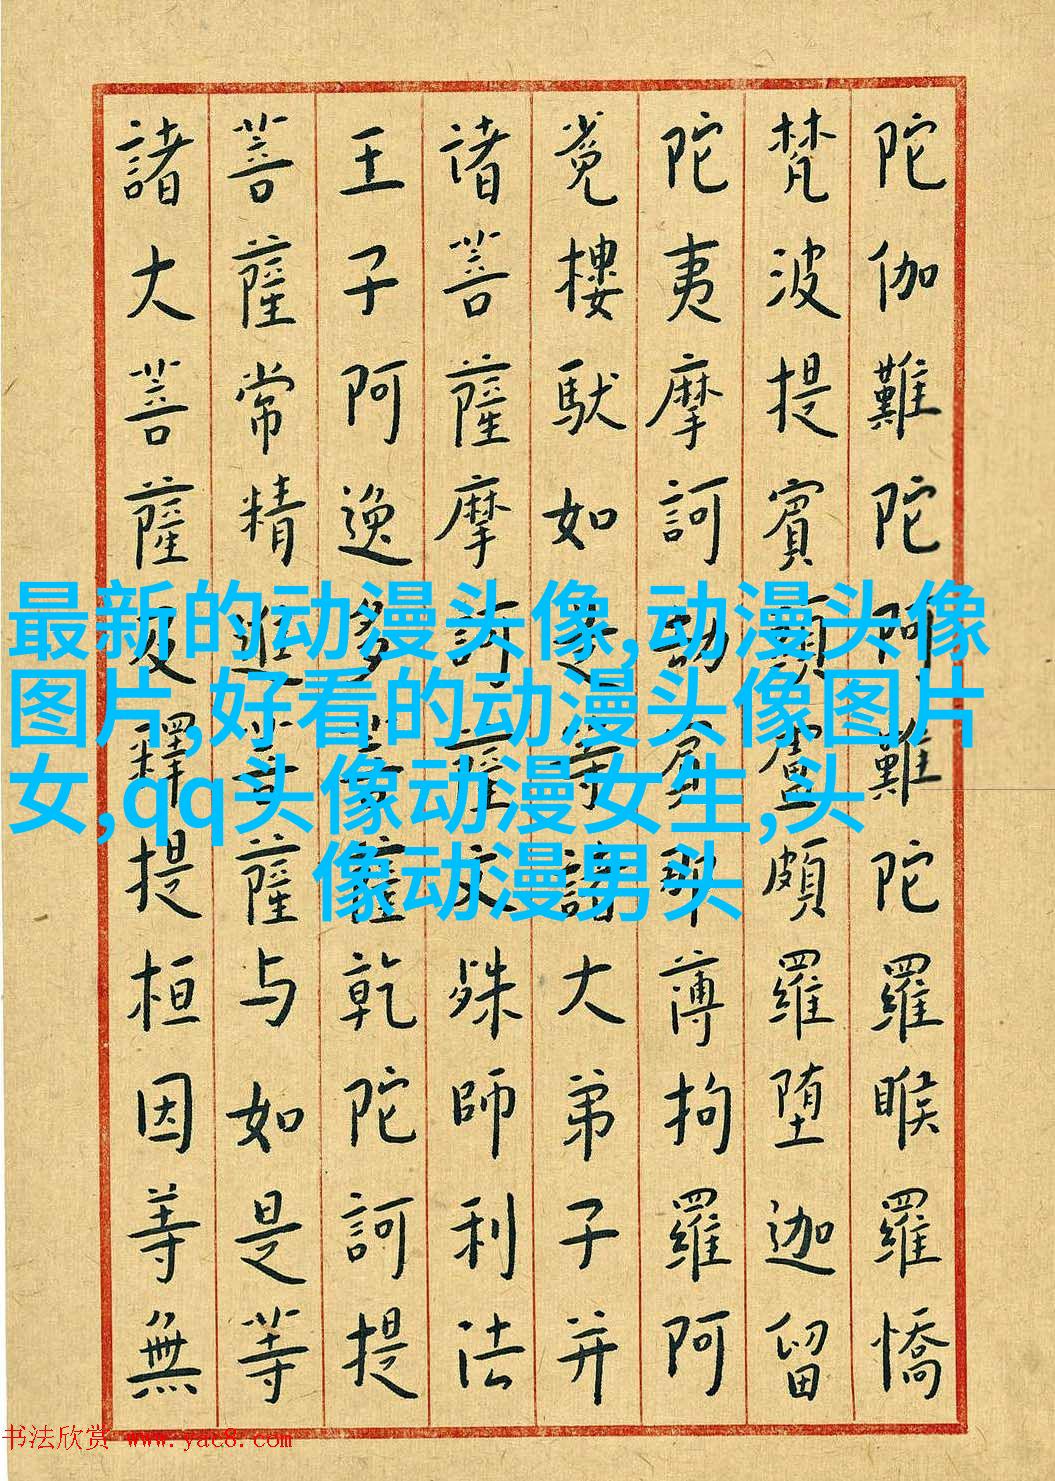 陀伽難陀阿難陀羅睺羅憍
梵波提賓頭盧頗羅堕迦留
陀夷摩訶劫賓那薄拘羅阿
樓馱如是等諸大弟子并
诸菩薩摩訶薩文殊師利法
王子阿逸多菩薩乾陀訶提
菩薩常精進菩薩与如是等
諸大菩薩及釋提桓因等無
最新的动漫头像,动漫头像
图片,好看的动漫头像图片
女,qq头像动漫女生,头
像动漫男头
书法欣赏 www.yac8.com